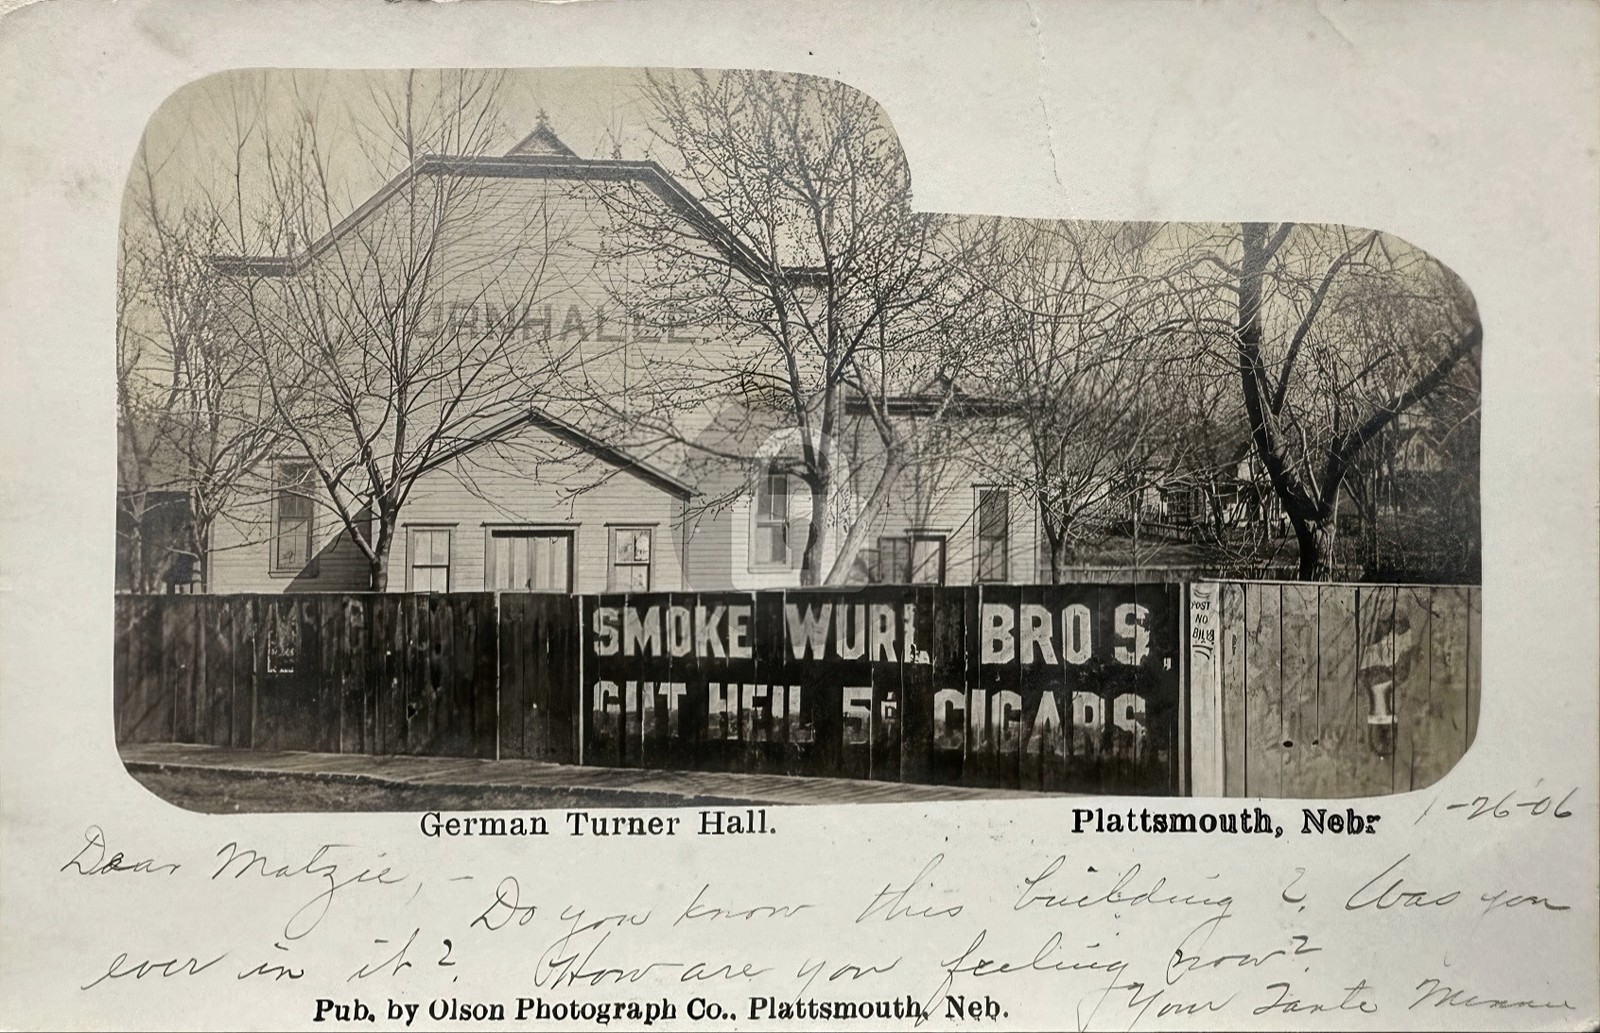 URNHALLE
SMOKE WURL BROS.
GUT HEIL 5¢ CIGARS
POST
NO
BILLS
German Turner Hall.
Plattsmouth, Nebr
1-26-06
Dear Matzie, -
Do you know this building? Was you
ever in it? How are you feeling now?
Your Tante Minnie
Pub. by Olson Photograph Co., Plattsmouth, Neb.